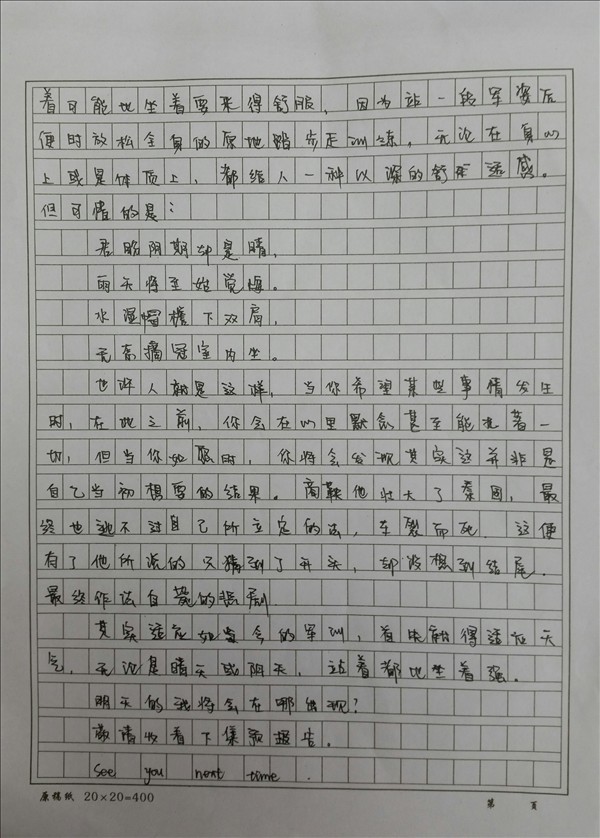 着可能比坐着要来得舒服，因为站一段军姿后
便时放松全身的原地踏步走训练，无论在身心
上或是体质上，都给人一种以深的舒适感。
但可惜的是：
君盼阴期却是晴，
雨天将至始觉悔。
水湿帽檐下双肩，
无奈摘冠室内坐。
也许人就是这样，当你希望某些事情发生
时，在此之前，你会在心里默念甚至能看着一
切，但当你如愿时，你将会发现其实这并非是
自己当初想要的结果。商鞅他壮大了秦国，最
终也逃不过自己所立定的法，车裂而死。这便
有了他所说的只猜到了开头，却没想到结尾。
最终作法自毙的悲剧。
其实适应如当今的军训，着 得适应天
气，无论是晴天或阴天，站着都比坐着强。
明天的我将会在哪出现？
敬请收看下集预报告。
See you next time.
原稿纸 20×20=400 第 页